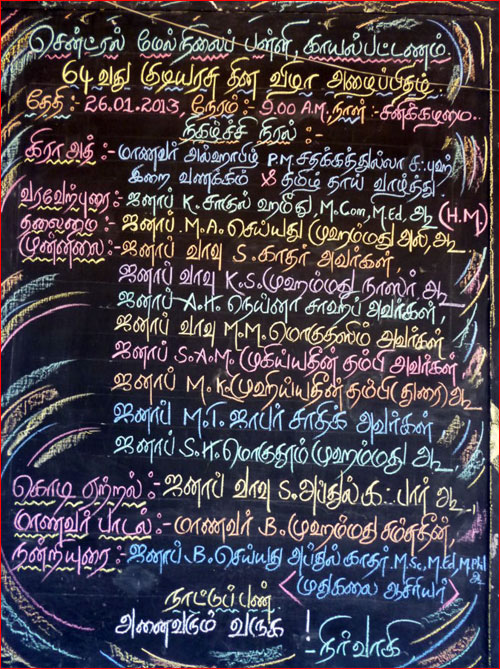 சென்ட்ரல் மேல்நிலைப் பள்ளி, காயல்பட்டணம்.
64 வது குடியரசு தின விழா அழைப்பிதழ்.
தேதி :- 26.01.2013, நேரம் :- 9.00 A.M, நாள் :- சனிக்கிழமை..
நிகழ்ச்சி நிரல் :-
கிராஅத் :- மாணவர் அல்ஹாபிழ் P.M சதக்கத்துல்லா
இறை வணக்கம் & தமிழ் தாய் வாழ்த்து
வரவேற்புரை :- ஜனாப் K. ஹமீது, M.Com, M.Ed, அ. (H.M)
தலைமை :- ஜனாப் M.A. செய்யது முஹம்மது அலி, அ.
முன்னிலை :- ஜனாப் வாவு S. காதர் அவர்கள்,
ஜனாப் வாவு K.S. முஹம்மது நாஸர் அ.
ஜனாப் A.H. நெய்னா சாஹிப் அவர்கள்,
ஜனாப் வாவு M.M. மொகுதஸிம் அவர்கள்
ஜனாப் S.A.M. முகிய்யதீன் தம்பி அவர்கள்
ஜனாப் M.K. முஹிய்யதீன் தம்பி (துரை) அ.
ஜனாப் M.T. ஜாபர் சாதிக் அவர்கள்
ஜனாப் S.H. மொகுதூம் முஹம்மது அ.
கொடி ஏற்றல் :- ஜனாப் வாவு S. அப்துல் கஃபார் அ.
மாணவர் பாடல் :- மாணவர் B. முஹம்மது சம்சுதீன்,
நன்றியுரை :- ஜனாப். B. செய்யது அப்துல் காதர். M.Sc, M.Ed, M.Phil அ.
<முதுகலை ஆசிரியர்>
நாட்டுப்பண்
அனைவரும் வருக !
- நிர்வாகி